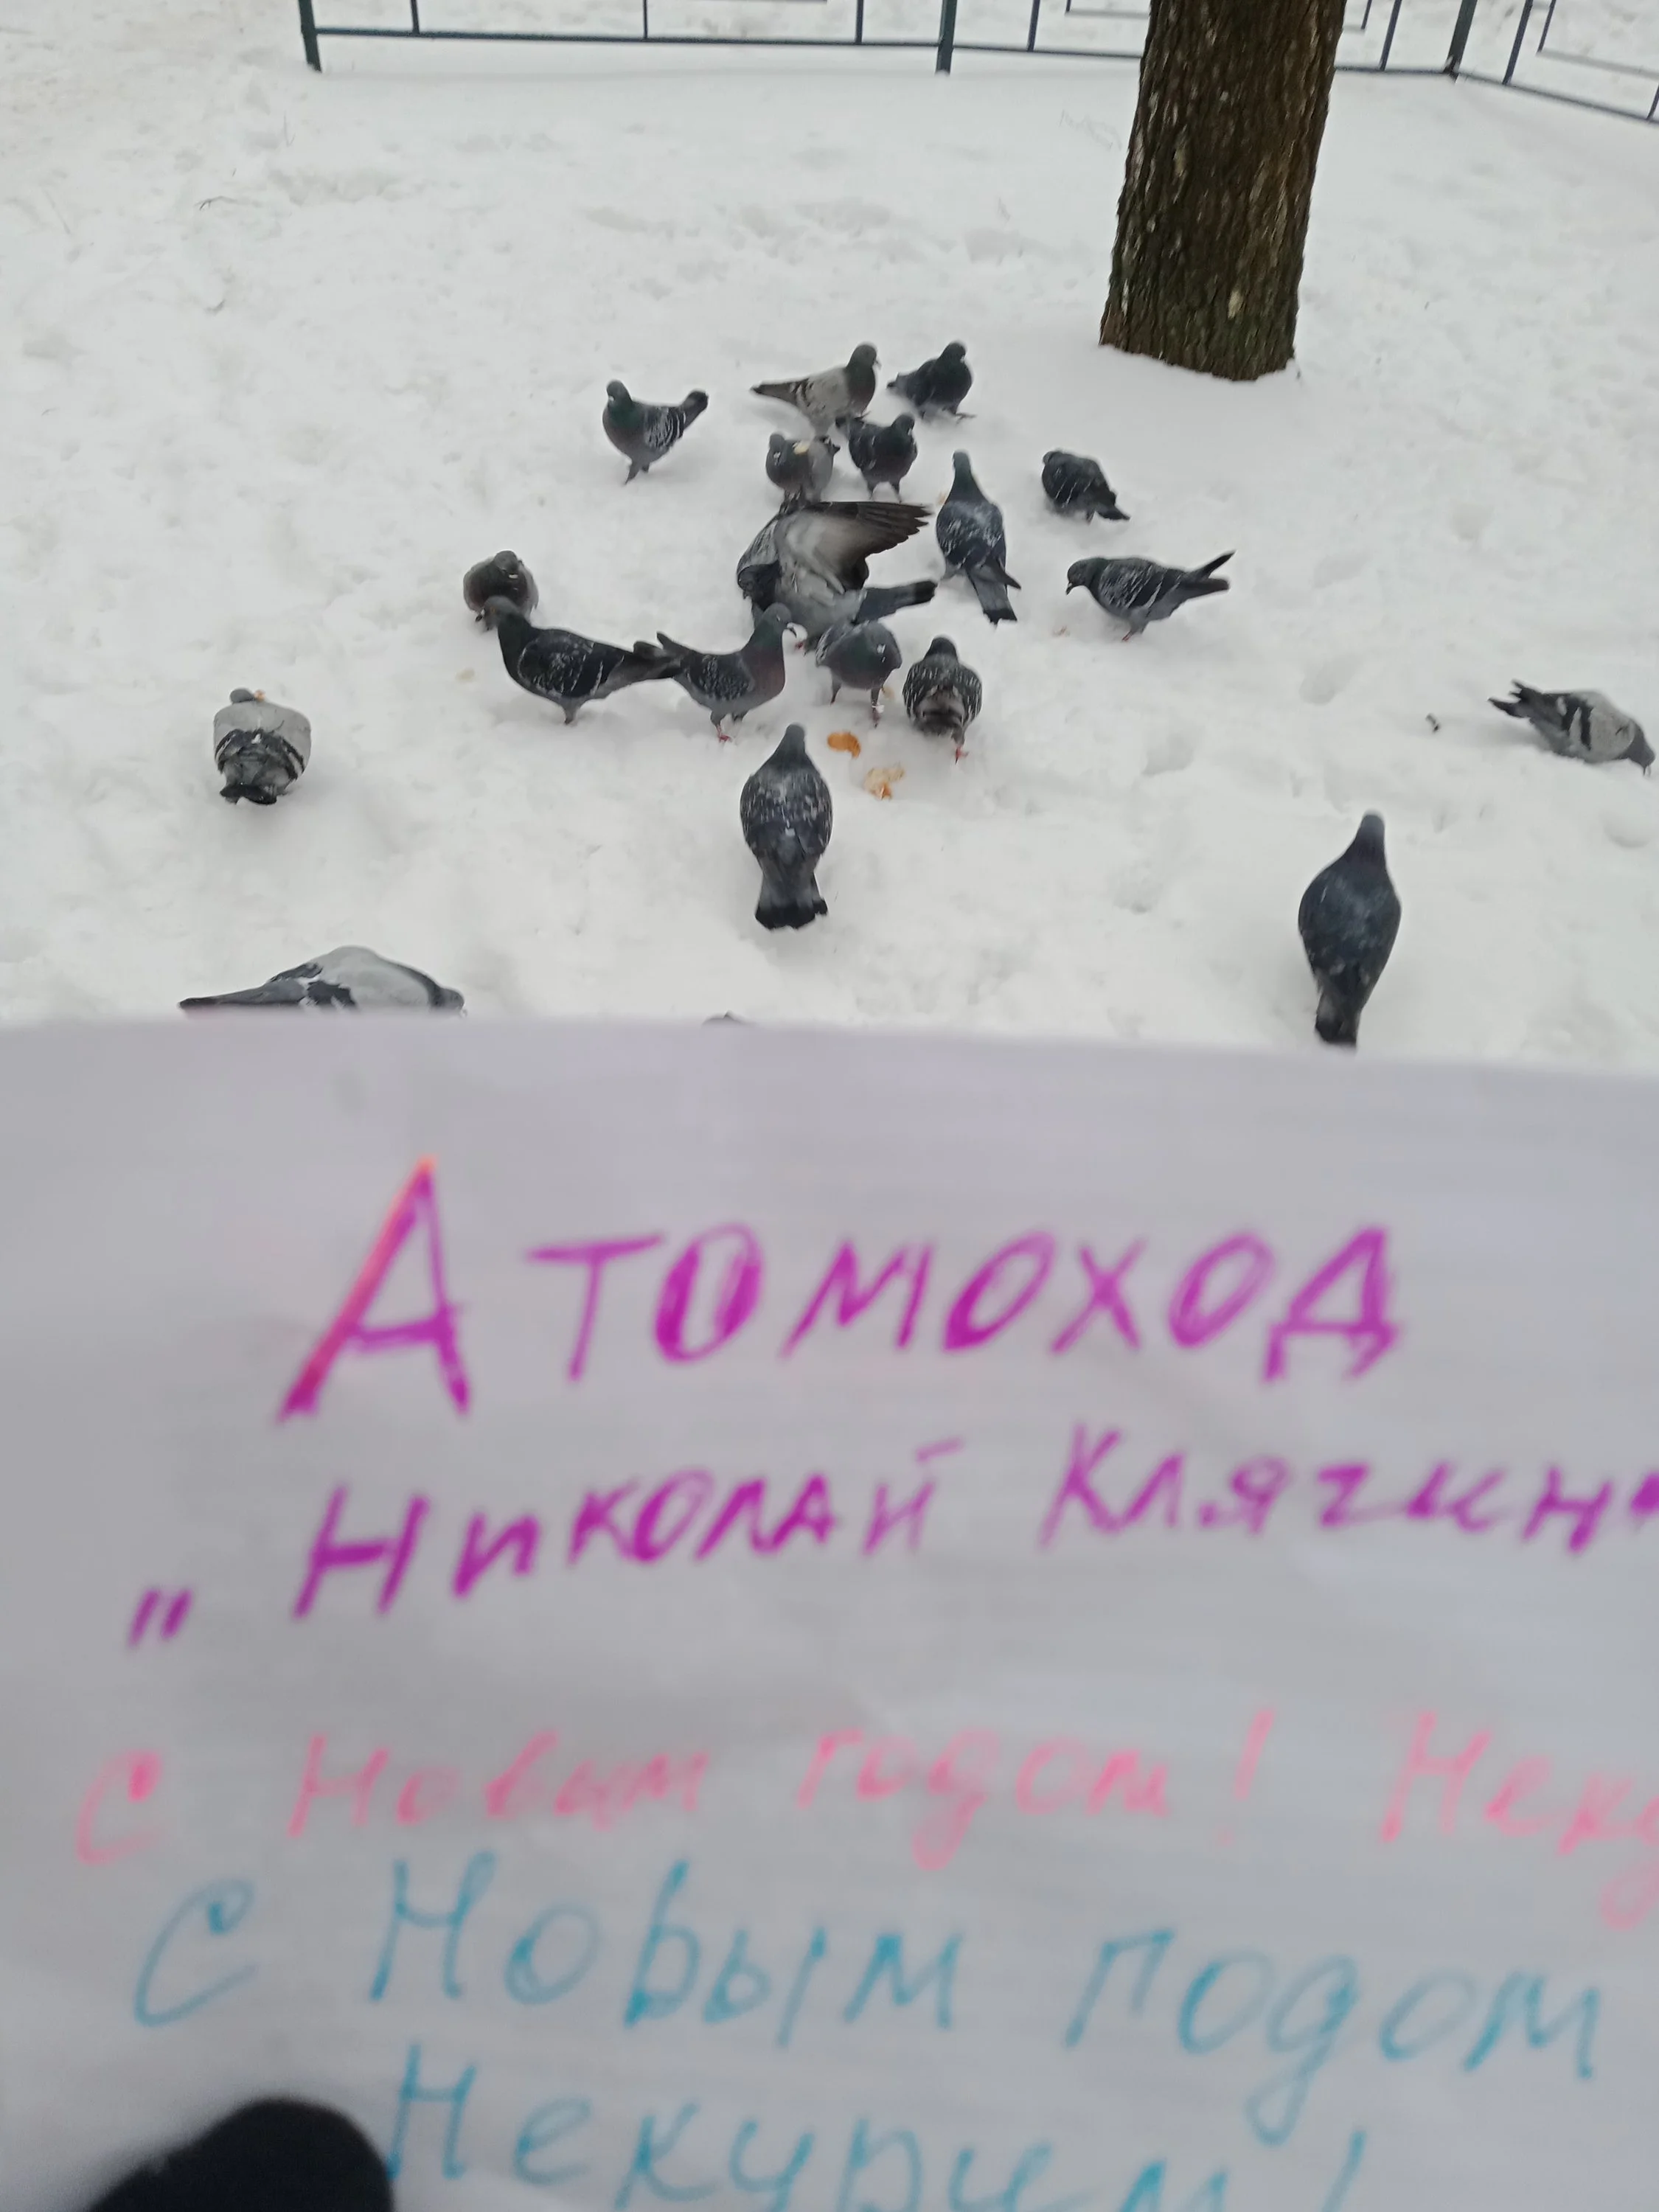 Атомоход
„Николай Клячкин
С Новым годом! Неку
С Новым годом
Некурим!